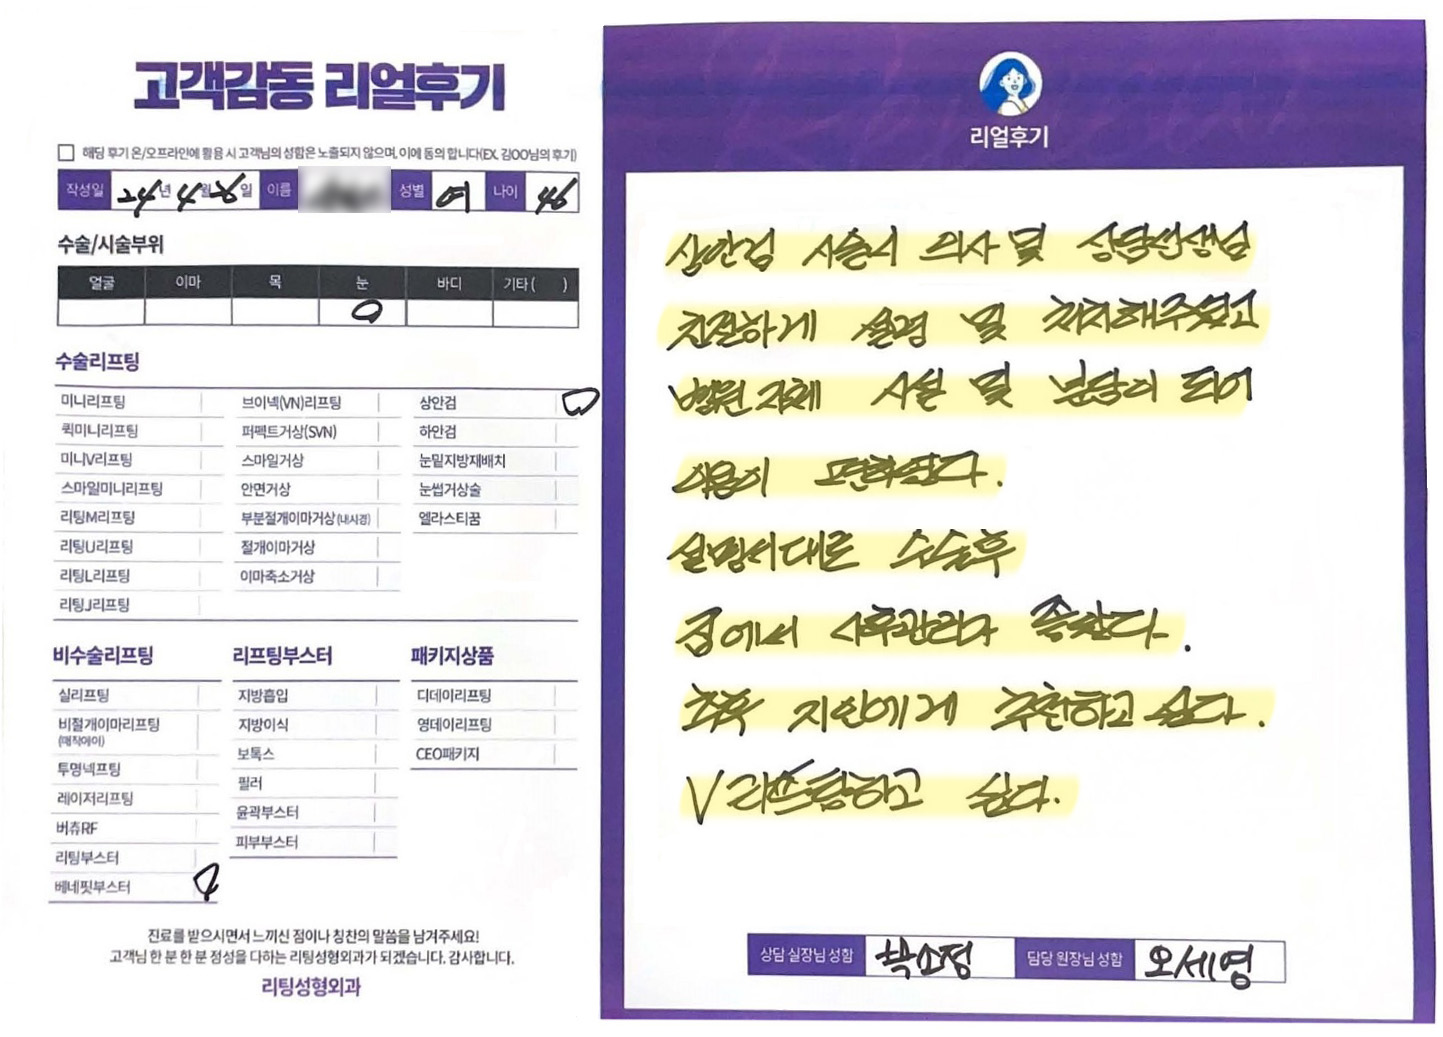 고객감동 리얼후기
해당 후기 온/오프라인에 활용 시 고객님의 성함은 노출되지 않으며, 이에 동의 합니다(EX. 김OO님의 후기)
작성일 24년 4월 26일 이름 성별 여 나이 46
수술/시술부위
얼굴 이마 목 눈 바디 기타( )
수술리프팅
미니리프팅 브이넥(VN)리프팅 상안검
퀵미니리프팅 퍼펙트거상(SVN) 하안검
미니V리프팅 스마일거상 눈밑지방재배치
스마일미니리프팅 안면거상 눈썹거상술
리팅M리프팅 부분절개이마거상(내시경) 엘라스티꿈
리팅U리프팅 절개이마거상
리팅L리프팅 이마축소거상
리팅J리프팅
비수술리프팅 리프팅부스터 패키지상품
실리프팅 지방흡입 디데이리프팅
비절개이마리프팅 지방이식 영데이리프팅
(매직에이)
보톡스 CEO패키지
투명넥프팅 필러
레이저리프팅 윤곽부스터
버츄RF 피부부스터
리팅부스터
베네핏부스터
진료를 받으시면서 느끼신 점이나 칭찬의 말씀을 남겨주세요!
고객님 한 분 한 분 정성을 다하는 리팅성형외과가 되겠습니다. 감사합니다.
리팅성형외과
리얼후기
상안검 시술시 의사 및 상담선생님
친절하게 설명 및 처치해주셨고
병원 자체 시설 및 분담이 되어
이용이 편하였다.
설명서대로 수술후
집에서 사후관리가 좋았다.
추후 지인에게 추천하고 싶다.
V리프팅하고 싶다.
상담 실장님 성함 박소정 담당 원장님 성함 오세영